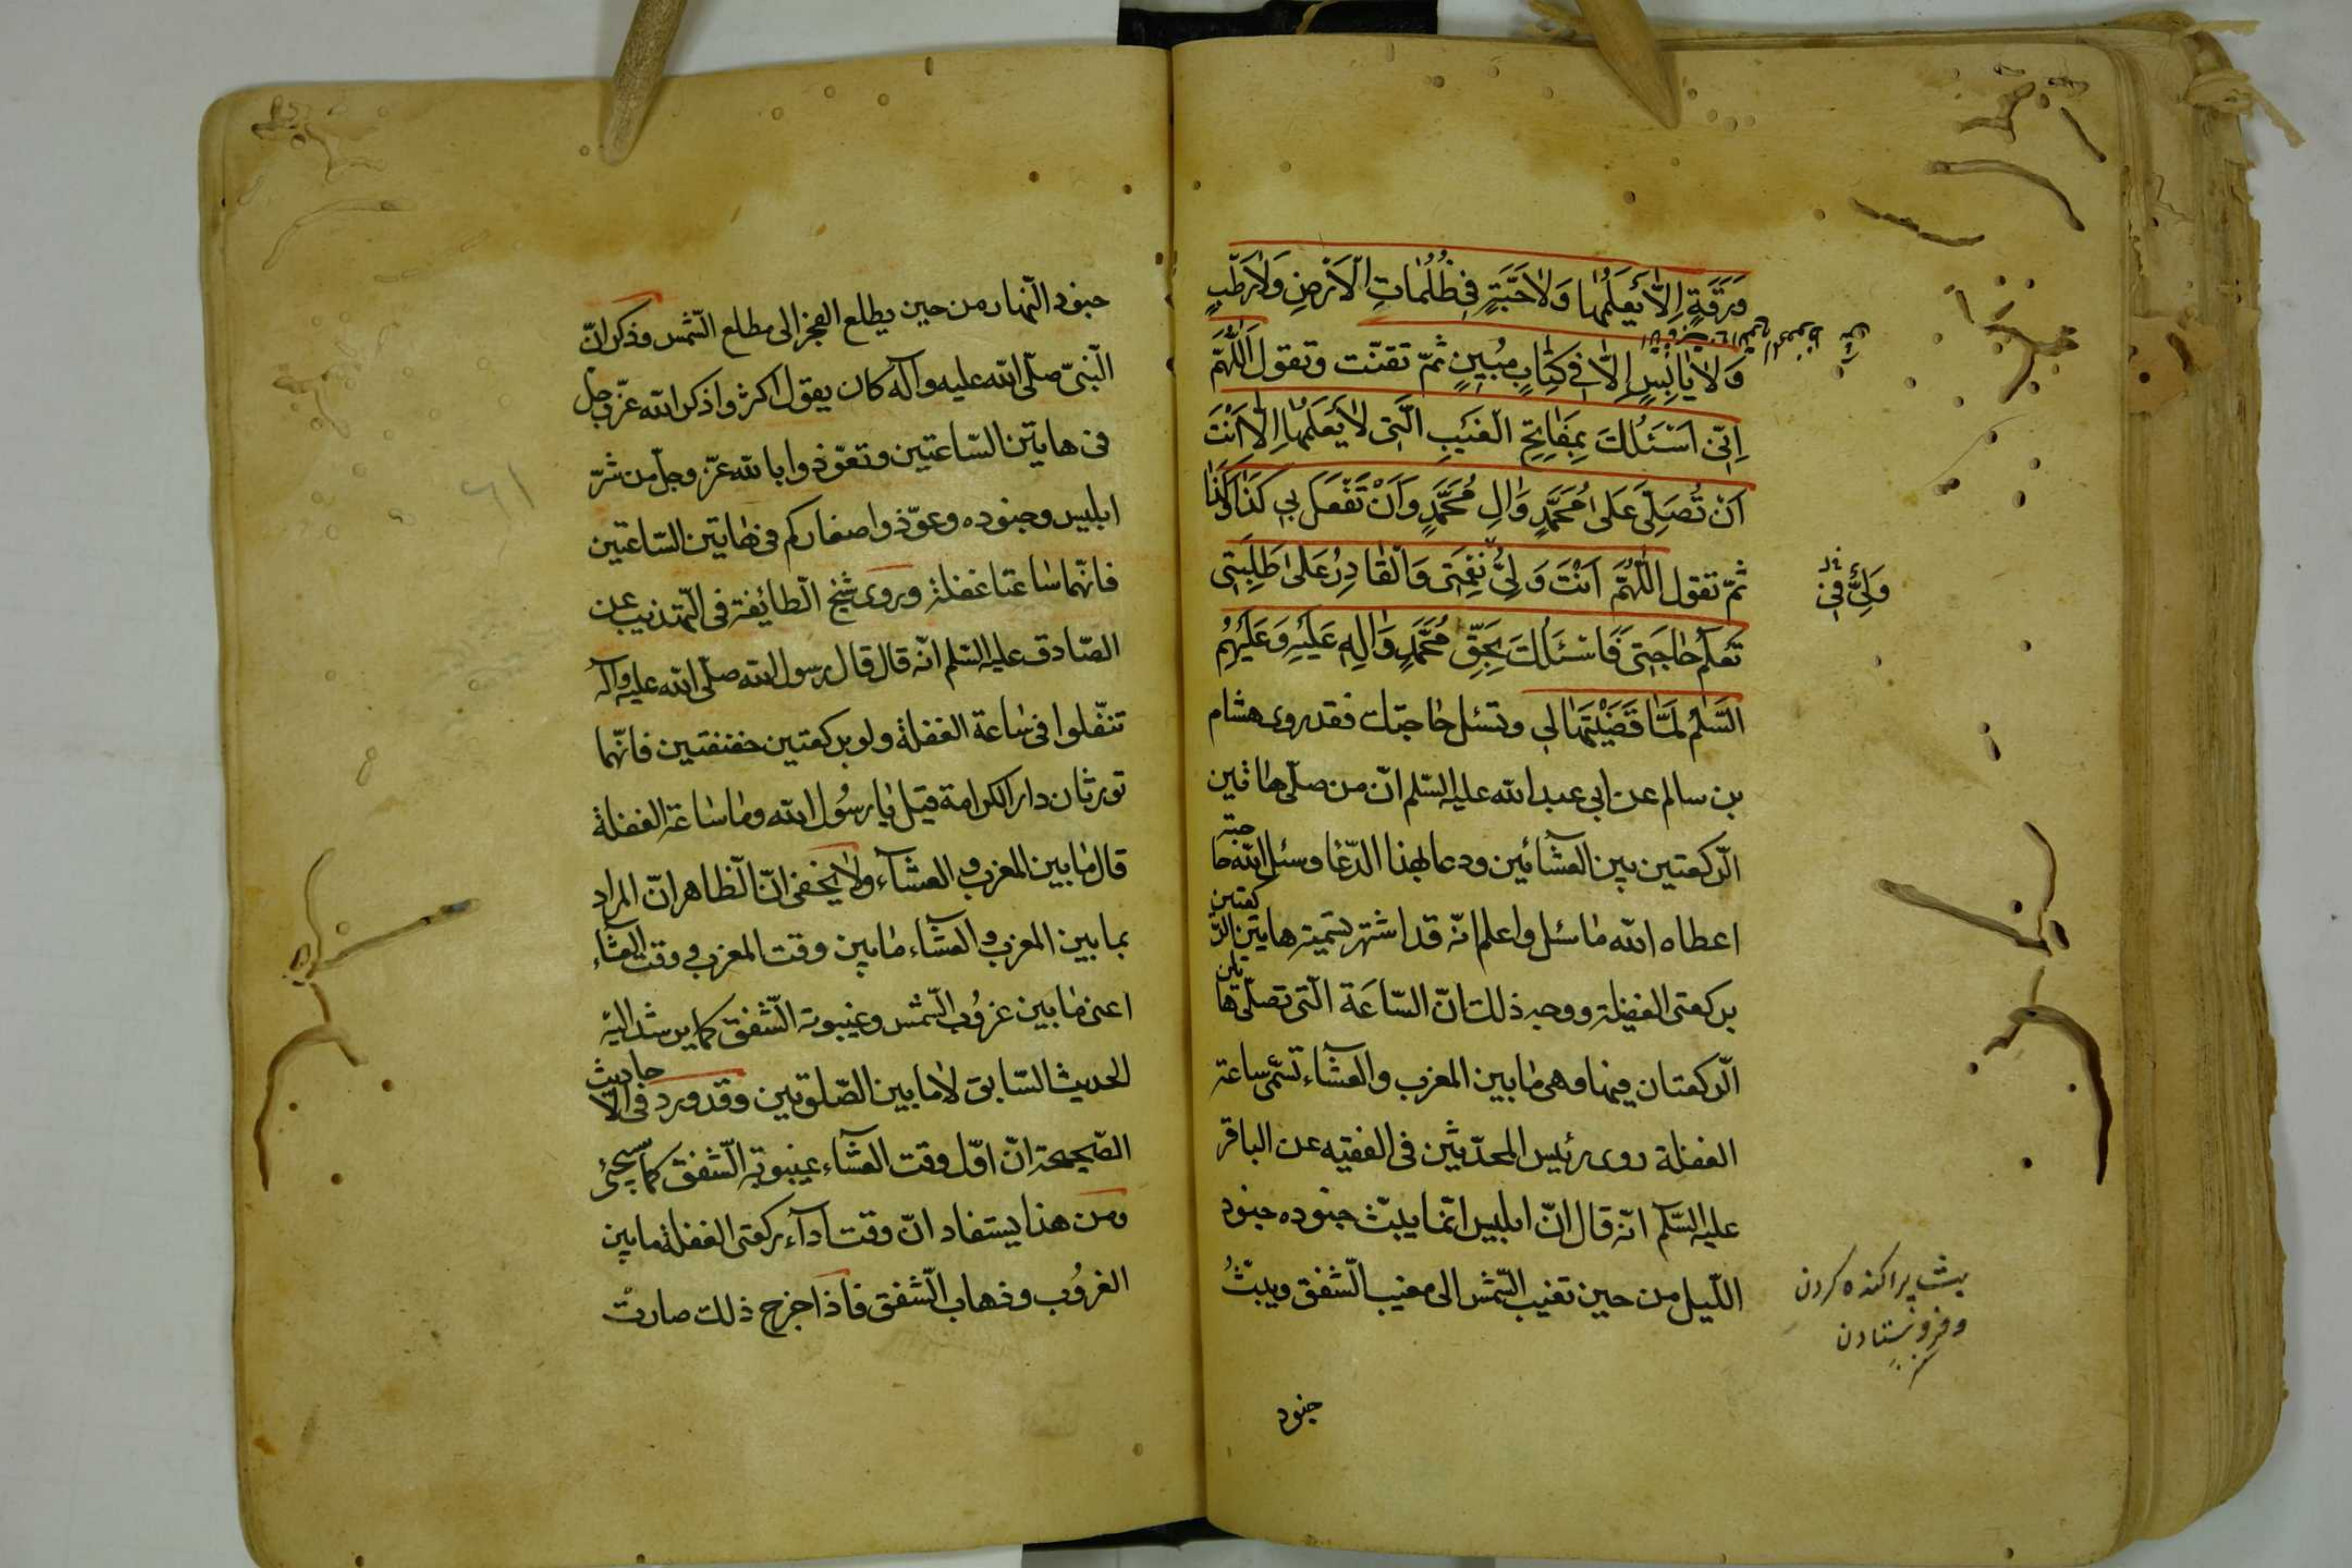 وَرَقَةٍ اِلّٰا يَعْلَمُهٰا وَلٰا حَبَّةٍ فِي ظُلُمٰاتِ الْاَرْضِ وَلٰا رَطْبٍ
وَلٰا يٰابِسٍ اِلّٰا فِي كِتٰابٍ مُبِينٍ ثمّ تقنّت وتقول اَللّٰهُمَّ
اِنِّي اَسْئَلُكَ بِمَفٰاتِحِ الْغَيْبِ الَّتِي لٰا يَعْلَمُهٰا اِلّٰا اَنْتَ
اَنْ تُصَلِّيَ عَلىٰ مُحَمَّدٍ وَاٰلِ مُحَمَّدٍ وَاَنْ تَفْعَلَ بِي كَذٰا وَكَذٰا
ثمّ تقول اَللّٰهُمَّ اَنْتَ وَلِيُّ نِعْمَتِي وَالْقٰادِرُ عَلىٰ طَلِبَتِي
وَلِيٌّ فِي
تَعْلَمُ حٰاجَتِي فَاَسْئَلُكَ بِحَقِّ مُحَمَّدٍ وَاٰلِهِ عَلَيْهِ وَعَلَيْهِمُ
السَّلٰمُ لَمَّا قَضَيْتَهٰا لِي وتسئل حاجتك فقد روى هشام
بن سالم عن ابي عبد الله عليه السّلم انّ من صلّى هاتين
الرّكعتين بين العشائين ودعا بهذا الدّعا وسئل الله حاجته
اعطاه الله ما سئل واعلم انّه قد اشتهر تسمية هاتين الرّكعتين
بركعتى الغفيلة ووجه ذلك انّ السّاعة الّتى تصلّى هاتين
الرّكعتان فيها وهى ما بين المغرب والعشاء تسمّى ساعة
الغفلة روى رئيس المحدّثين فى الفقيه عن الباقر
عليه السّلم انّه قال انّ ابليس انّما يبثّ جنوده جنود
اللّيل من حين تغيب الشّمس الى مغيب الشّفق ويبثّ
بث پراكنده كردن
وفرو فرستادن
جنود
جنود النّهار من حين يطلع الفجر الى مطلع الشّمس وذكر انّ
النّبىّ صلّى الله عليه وآله كان يقول اكثروا ذكر الله عزّ وجلّ
فى هاتين السّاعتين وتعوّذوا بالله عزّ وجلّ من شرّ
ابليس وجنوده وعوّذوا صغاركم فى هاتين السّاعتين
فانّهما ساعتا غفلة وروى شيخ الطّائفة فى التّهذيب عن
الصّادق عليه السّلم انّه قال قال رسول الله صلّى الله عليه وآله
تنفّلوا فى ساعة الغفلة ولو بركعتين خفيفتين فانّهما
تورثان دار الكرامة قيل يا رسول الله وما ساعة الغفلة
قال ما بين المغرب والعشاء ولا يخفى انّ الظاهر انّ المراد
بما بين المغرب والعشاء ما بين وقت المغرب ووقت العشاء
اعنى ما بين غروب الشّمس وغيبوبة الشّفق كما يرشد اليه
الحديث السّابق لا ما بين الصّلوتين وقد ورد فى الاحاديث
الصّحيحة انّ اوّل وقت العشاء غيبوبة الشّفق كما سيجئ
ومن هذا يستفاد انّ وقت اداء ركعتى الغفلة ما بين
الغروب وذهاب الشّفق فاذا خرج ذلك صارت